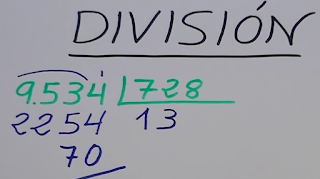 DIVISIÓN
9.534 728
2254 13
70